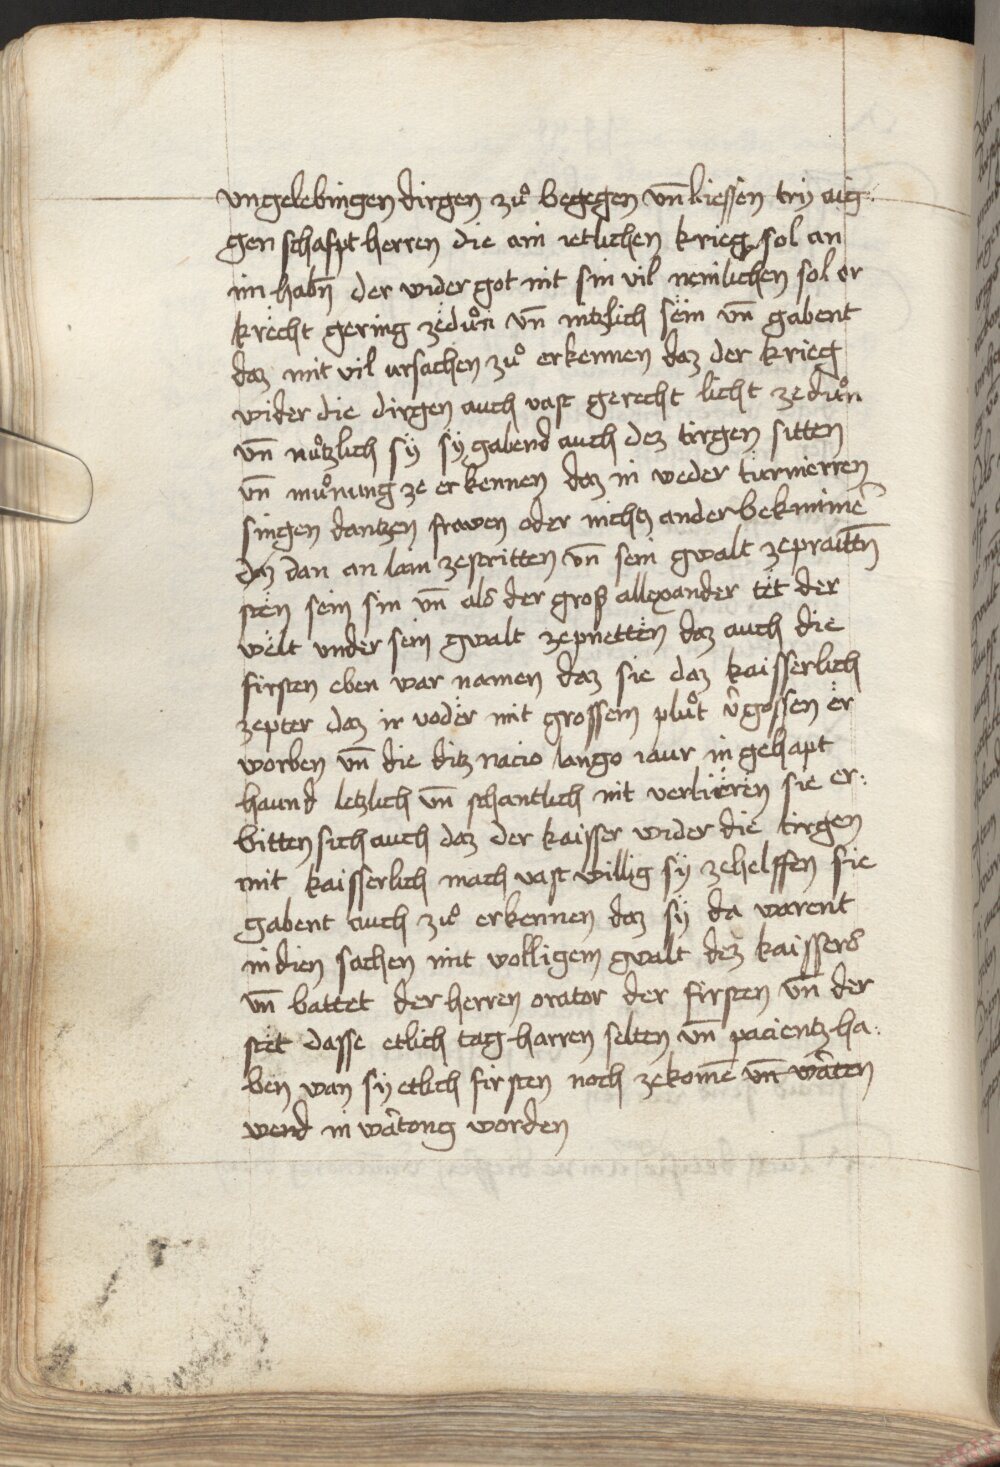 vngelebingen dirgen zuͦ begegen vn̄ liessen try aig:
gen schafpt herren die ain ietlichen krieg sol an
im habn̄ der wider got nit sin vil nemlichen sol er
krëcht gering zëduͦn vn̄ nitzlich sëin vn̄ gabent
daz mit vil ursachen zuͦ erkennen daz der krieg
wider die dirgen auch vast gerecht licht zeduͦn
vn̄ nuͦtzlich sÿ sÿ gabend auch dez tirgen sitten
vn̄ muͦnung ze erkennen daz in weder turnierren
singen dantzen frowen oder nichtz ander bekmime͂
daz dan an lain zestritten vn̄ sein gwalt zepraittn̄
stën sein sin vn̄ als der groß allexander tët der
wëlt vnder sein gwalt zepnettën daz auch die
firsten eben war namen daz sie daz kaisserlich
zepter daz ir voder mit grossem pluͦt v̂gossen ër
worben vn̄ die ditz nacio lango iaur in gehapt
haund letzlich vn̄ schantlich nit verliërën sie er:
bitten sich auch daz der kaisser wider die tirgen
mit kaisserlich mach vast willig sÿ zehelffen sie
gabent auch zuͦ erkennen daz sÿ da warent
in dien sachen mit volligem gwalt dez kaissers
vn̄ battet der herren orator der firsten vn̄ der
stët dasse etlich tag harren selten vn̄ pacientz ha:
ben wan sÿ etlich firsten noch zekome͂ vn̄ wâten
wend in wâtong worden